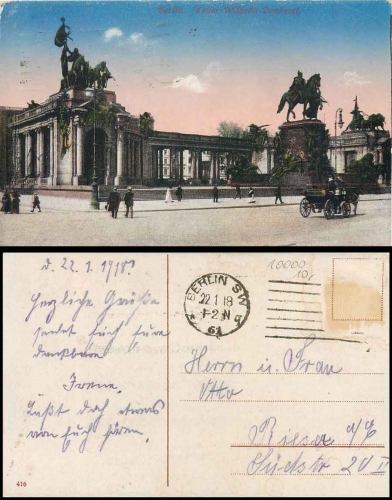 Berlin. Kaiser Wilhelm Denkmal.
d. 22.1.1918.
Herzliche Grüße
sendet Euch Eure
dankbare
Irene.
Laßt doch etwas
von Euch hören.
416
BERLIN SW
22.1.18
1-2 N
61
10000
10,
Herrn u. Frau
Otto
Riesa a/E